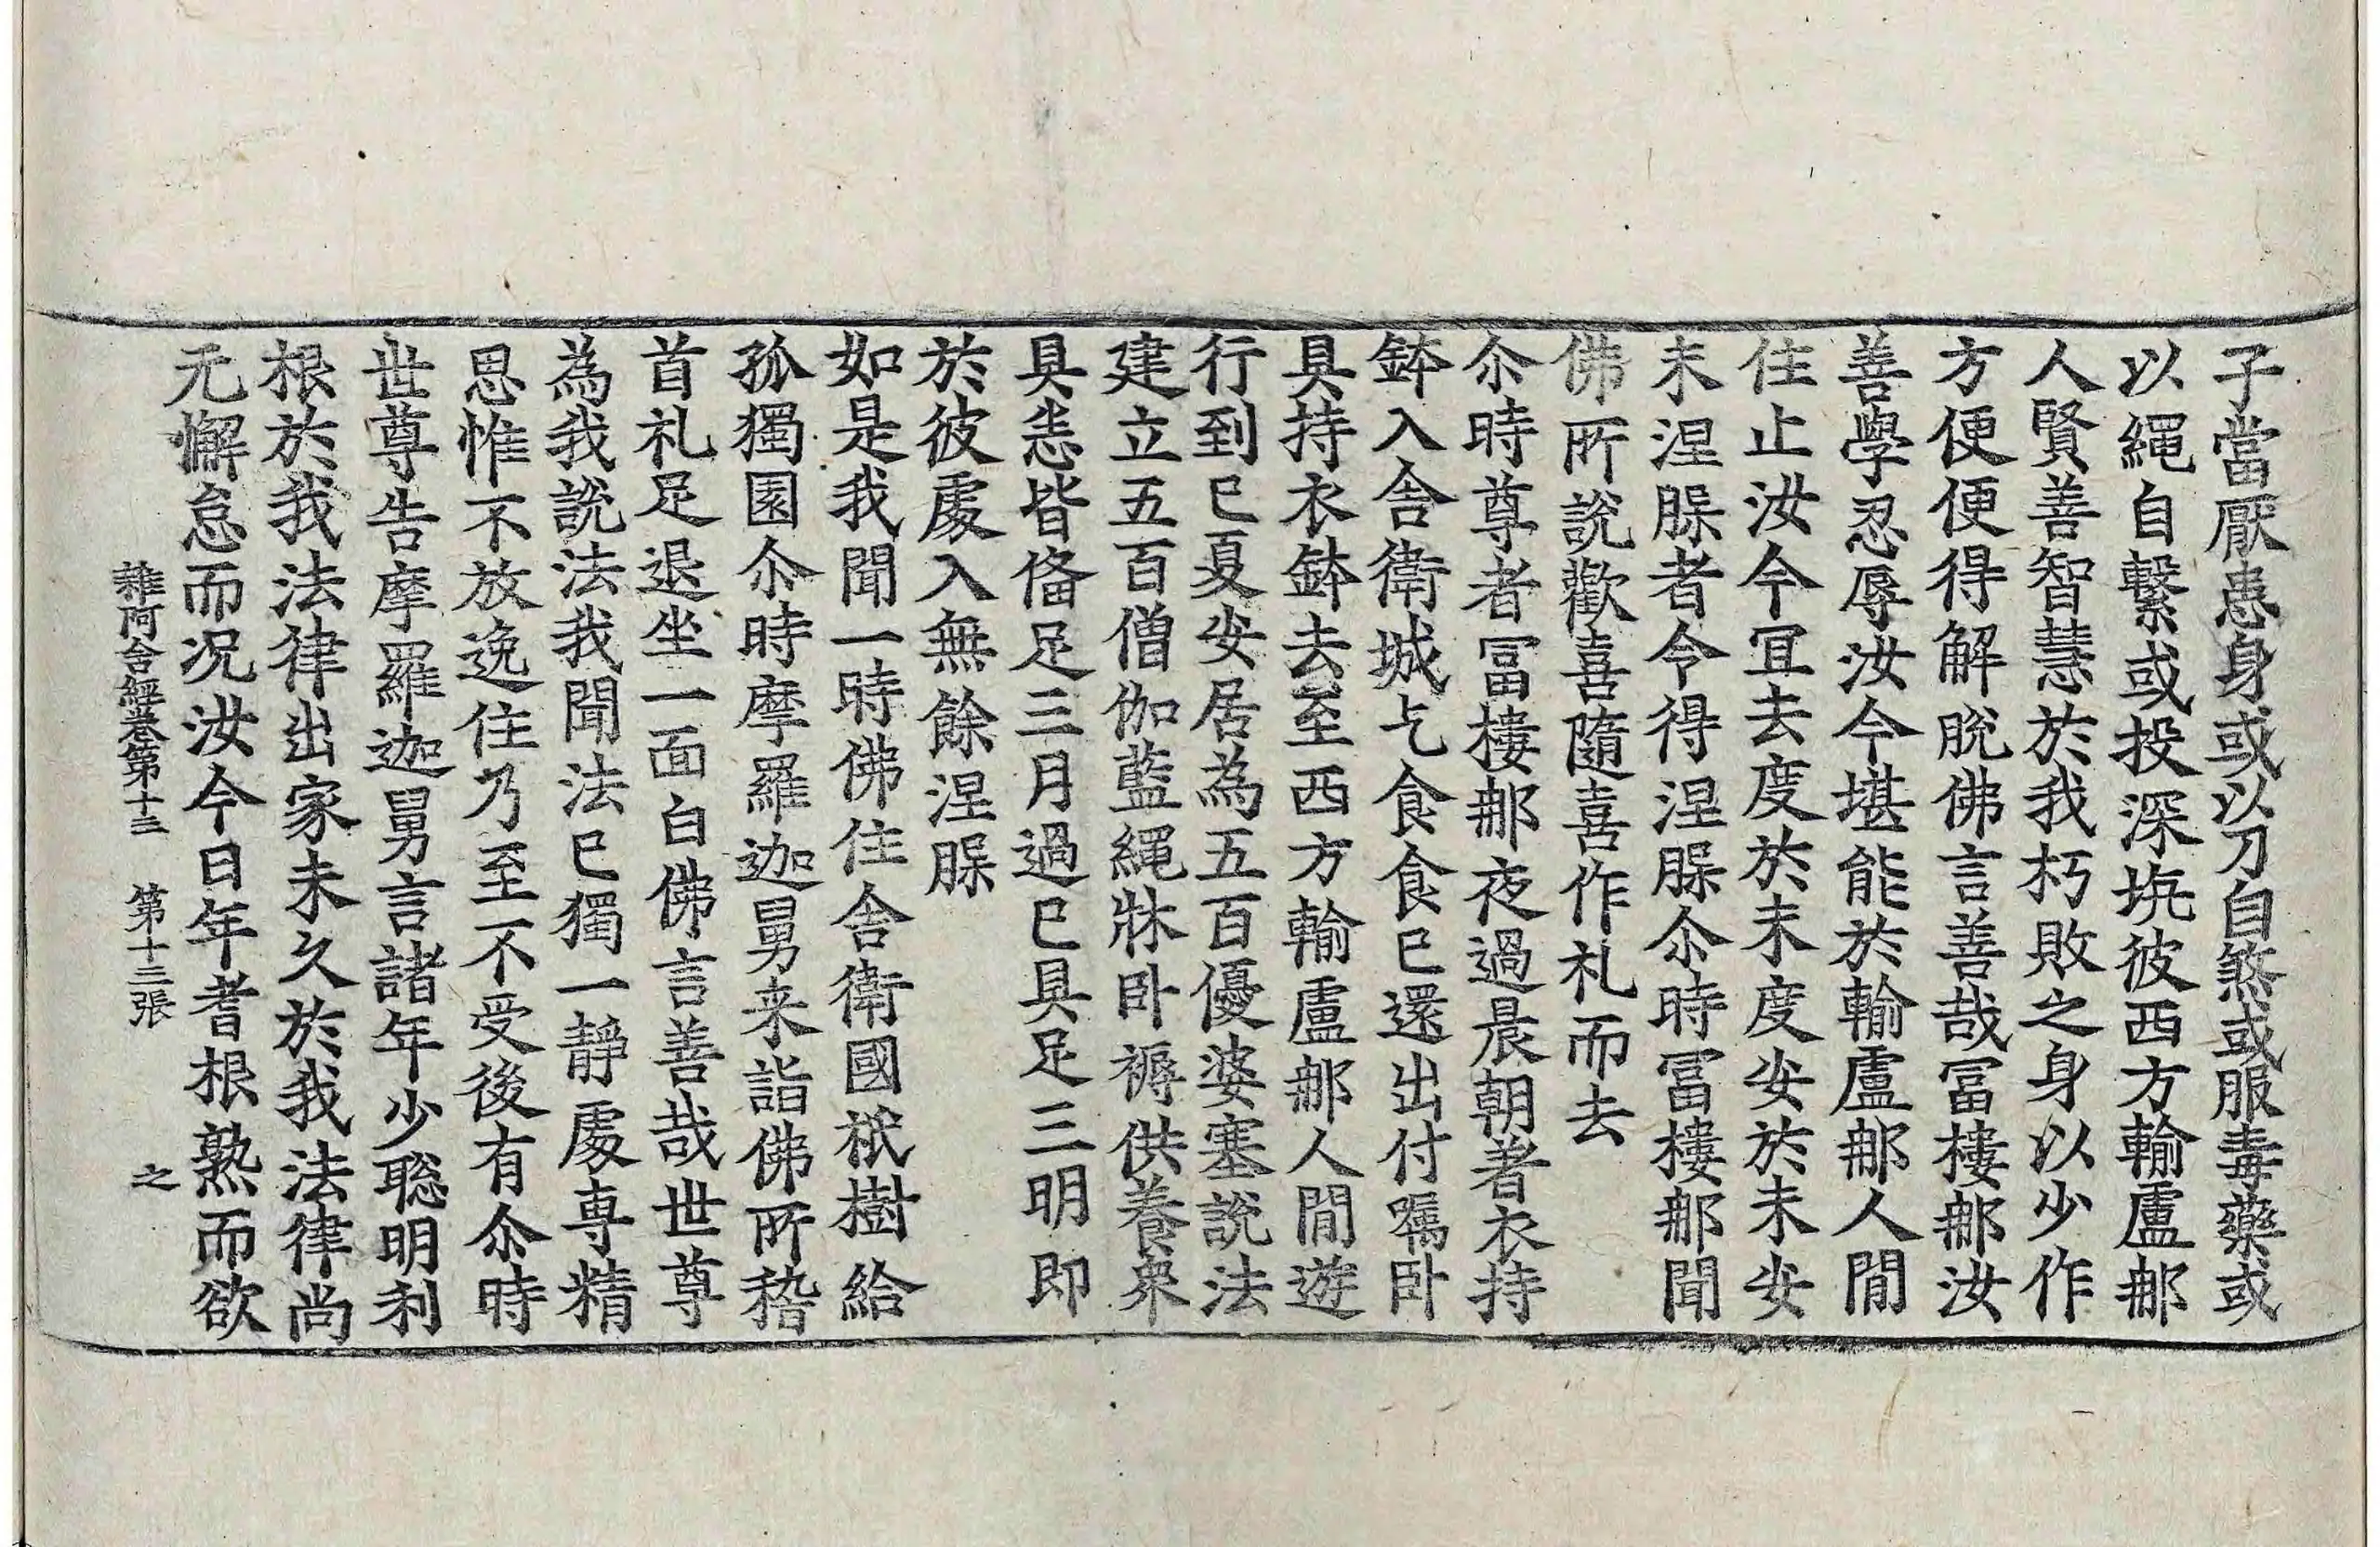 子當厭患身或以刀自煞或服毒藥或
以繩自繫或投深坑彼西方輸盧那
人賢善智慧於我朽敗之身以少作
方便便得解脫佛言善哉冨樓那汝
善學忍辱汝今堪能於輸盧那人閒
住止汝今冝去度於未度安於未安
未涅脲者令得涅脲尒時冨樓那聞
佛所說歡喜隨喜作礼而去
尒時尊者冨樓那夜過晨朝著衣持
鉢入舍衛城乞食食已還出付囑卧
具持衣鉢去至西方輸盧那人閒遊
行到已夏安居為五百優婆塞說法
建立五百僧伽藍繩牀卧褥供養衆
具悉皆俻足三月過已具足三明即
於彼處入無餘涅脲
如是我聞一時佛住舍衛國祇樹給
孤獨園尒時摩羅迦舅来詣佛所稽
首礼足退坐一面白佛言善哉世尊
為我說法我聞法已獨一靜處専精
思惟不放逸住乃至不受後有尒時
世尊告摩羅迦舅言諸年少聡明利
根於我法律出家未久於我法律尚
无懈怠而况汝今日年耆根熟而欲
雜阿含經卷第十三 第十三張 之